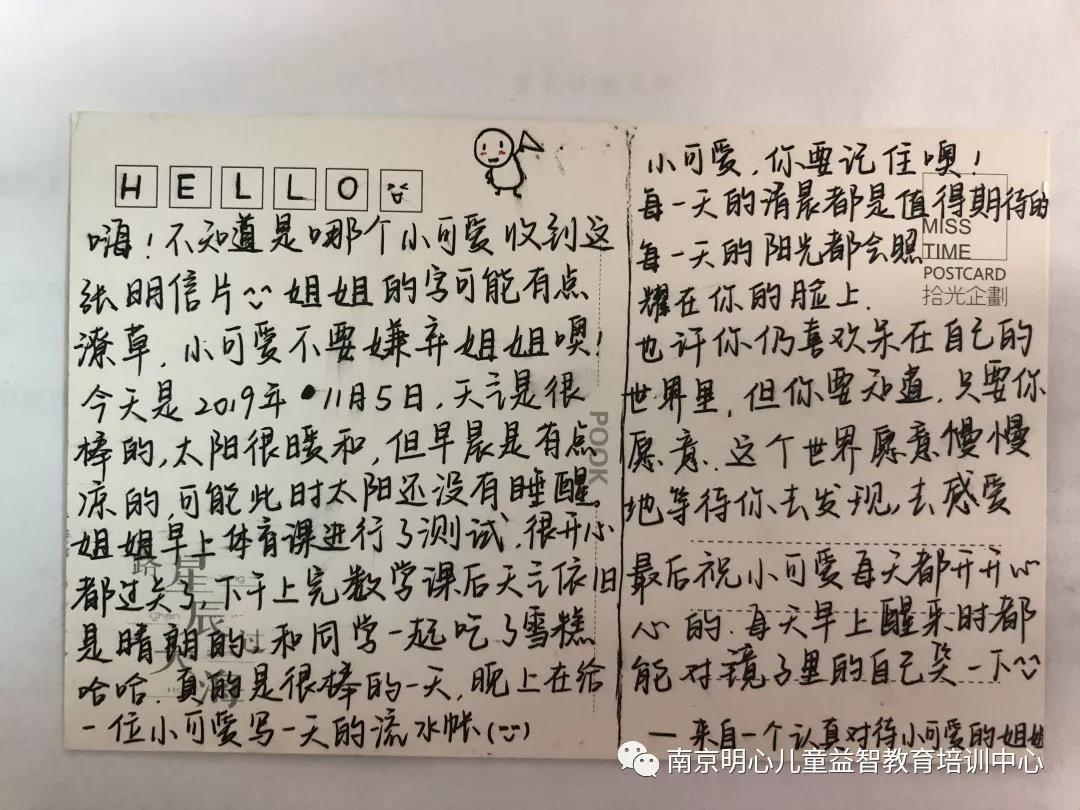 HELLO
嗨！不知道是哪个小可爱收到这
张明信片 姐姐的字可能有点
潦草，小可爱不要嫌弃姐姐噢！
今天是2019年11月5日，天气是很
棒的，太阳很暖和，但早晨是有点
凉的，可能此时太阳还没有睡醒
姐姐早上体育课进行了测试，很开心
都过关了，下午上完数学课后天气依旧
是晴朗的，和同学一起吃了雪糕
哈哈．真的是很棒的一天，晚上在给
一位小可爱写一天的流水帐
POOK
星辰
路过
大海
小可爱，你要记住噢！
每一天的清晨都是值得期待的
每一天的阳光都会照
耀在你的脸上．
也许你仍喜欢呆在自己的
世界里，但你要知道，只要你
愿意，这个世界愿意慢慢
地等待你去发现，去感爱
最后祝小可爱每天都开开心
心的．每天早上醒来时都
能对镜子里的自己笑一下
—来自一个认真对待小可爱的姐姐
MISS
TIME
POSTCARD
拾光企劃
南京明心儿童益智教育培训中心